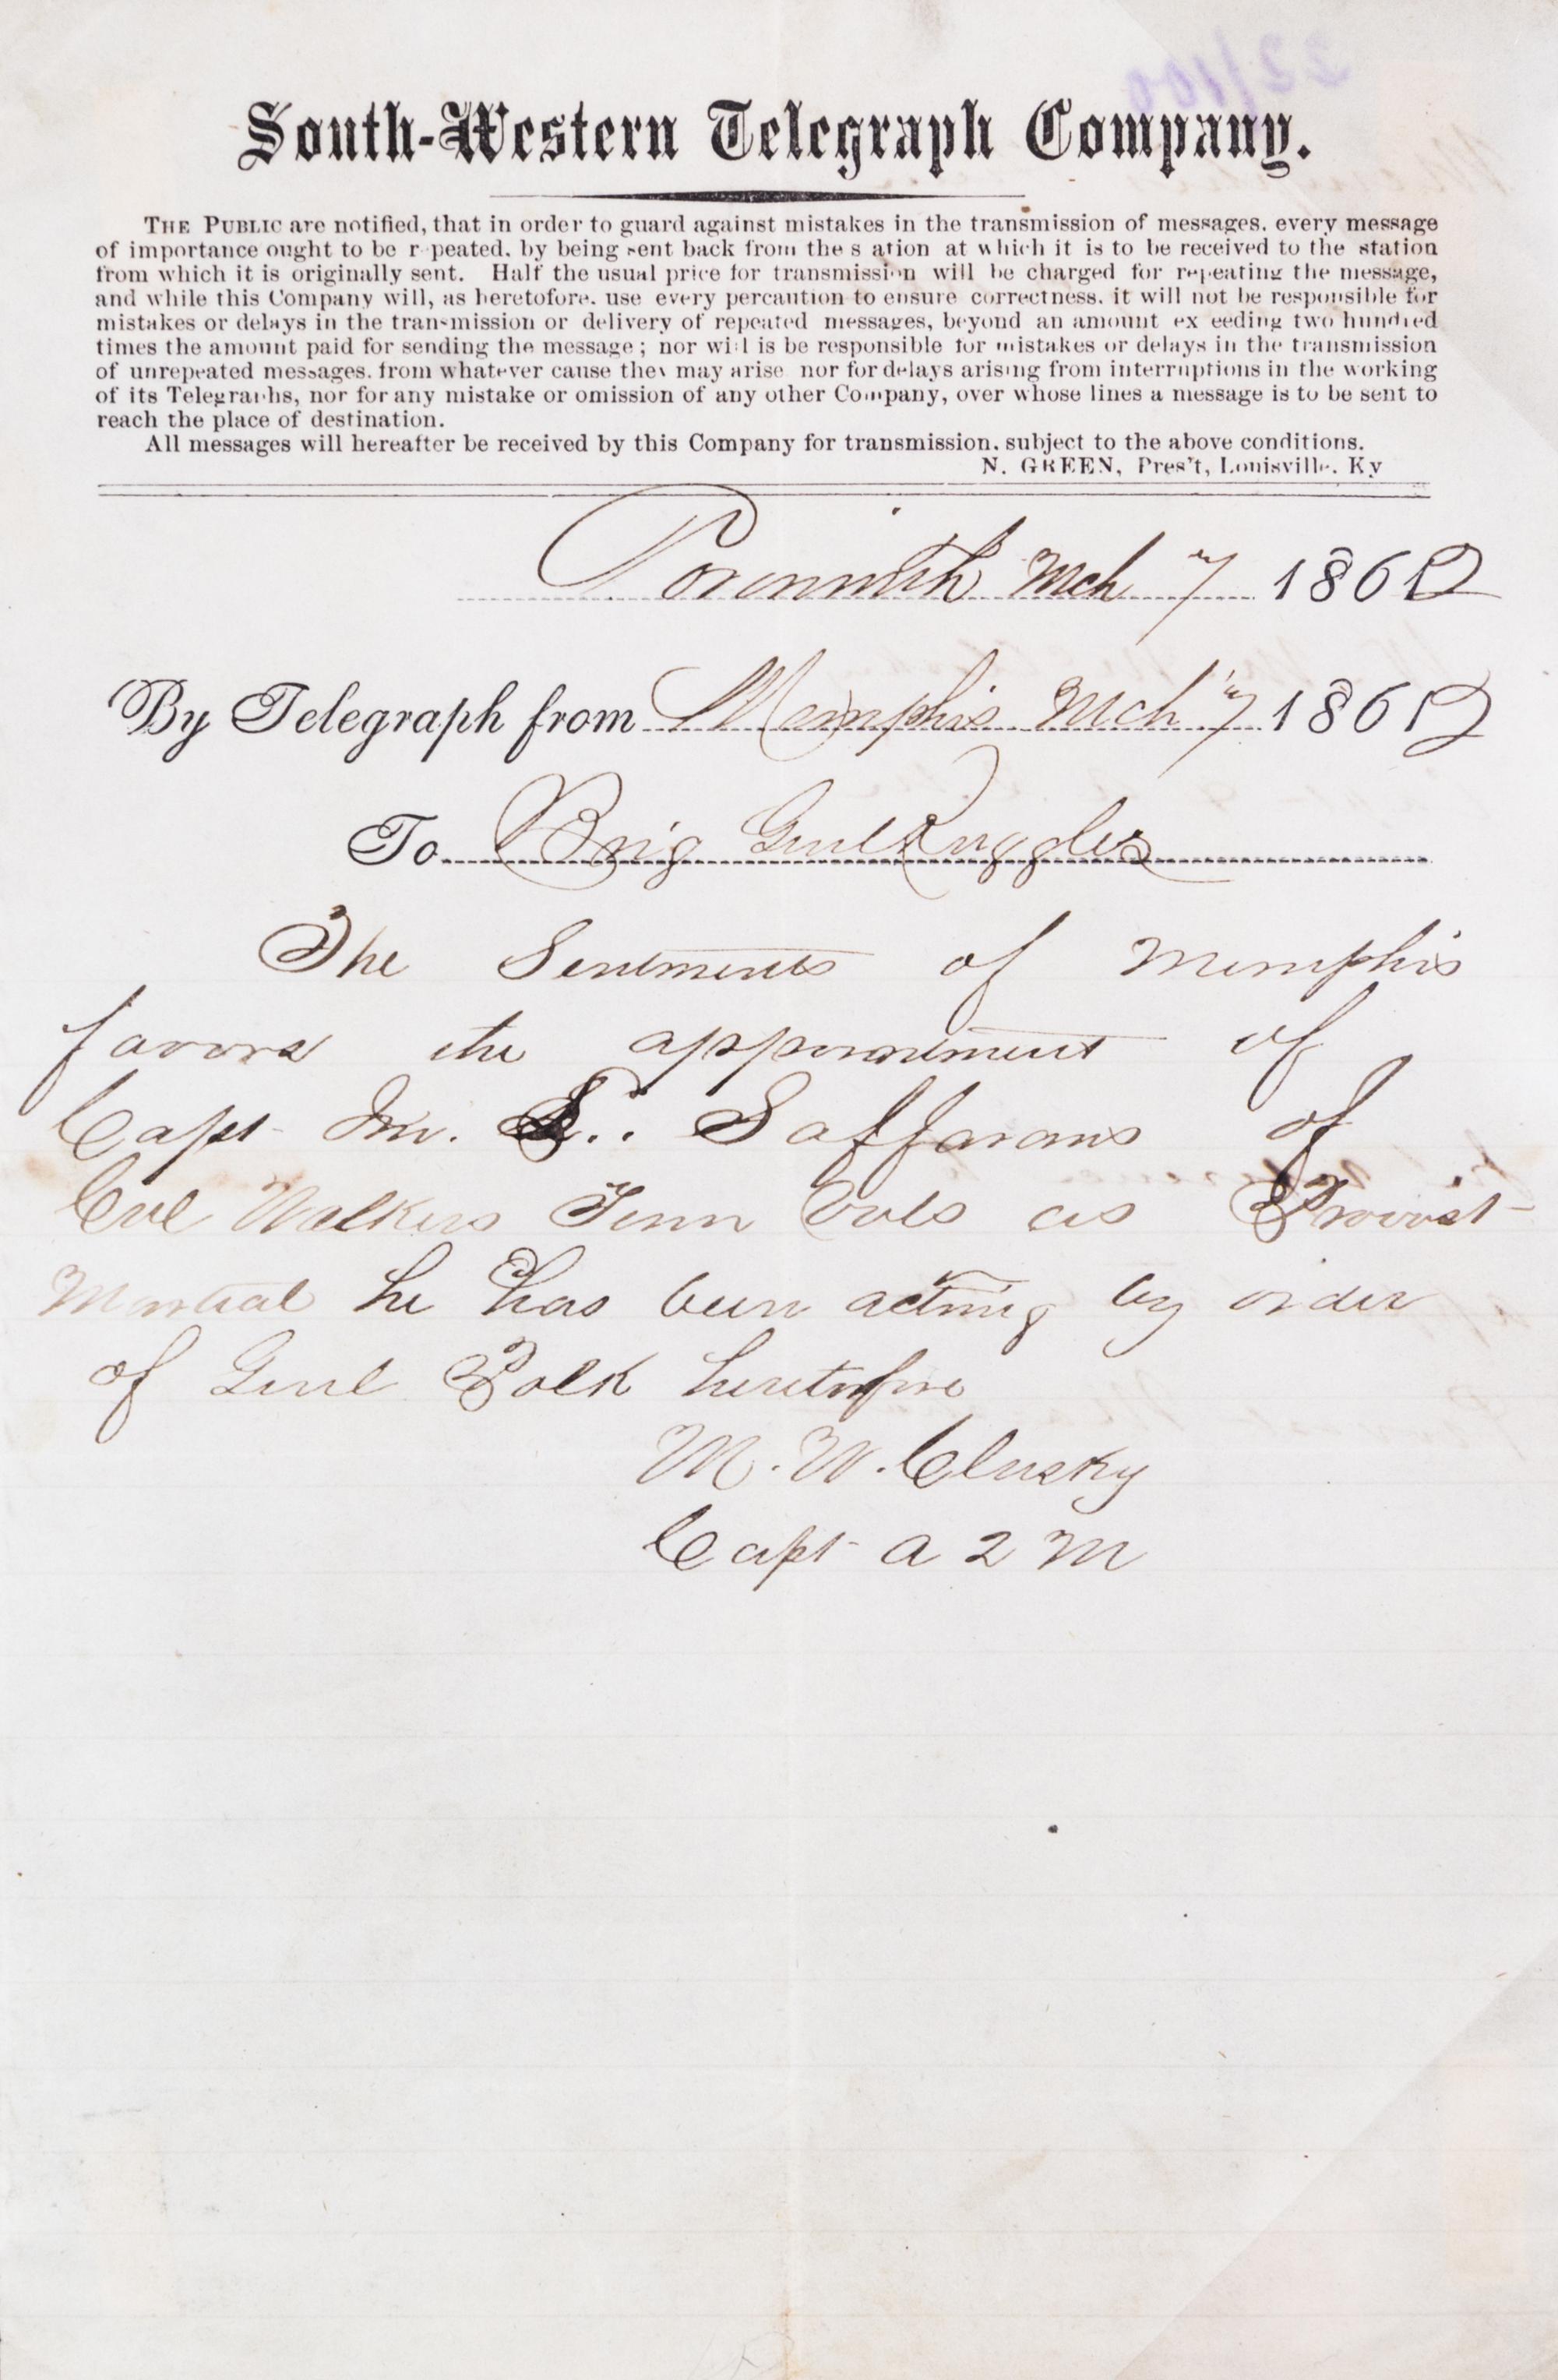 South-Western Telegraph Company.
THE PUBLIC are notified, that in order to guard against mistakes in the transmission of messages. every message
of importance ought to be r peated. by being sent back from the s ation at which it is to be received to the station
from which it is originally sent. Half the usual price for transmission will be charged for repeating the message,
and while this Company will, as heretofore. use every percaution to ensure correctness. it will not be responsible for
mistakes or delays in the transmission or delivery of repeated messages, beyond an amount ex eeding two hundred
times the amount paid for sending the message; nor will is be responsible for mistakes or delays in the transmission
of unrepeated messages. from whatever cause they may arise nor for delays arising from interruptions in the working
of its Telegraphs, nor for any mistake or omission of any other Company, over whose lines a message is to be sent to
reach the place of destination.
All messages will hereafter be received by this Company for transmission. subject to the above conditions.
N. GREEN, Pres't, Louisville. Ky
Corinnith Mch 7 1862
By Telegraph from Memphis Mch 7 1862
To Brig Genl Ruggles
The Sentments of Memphis
favors the appointment of
Capt Jno. S. Saffarans of
Col Walkers Tenn Vols as Provost
Martial he has been acting by order
of Genl Polk heretofore
M. W. Clusky
Capt A 2 M